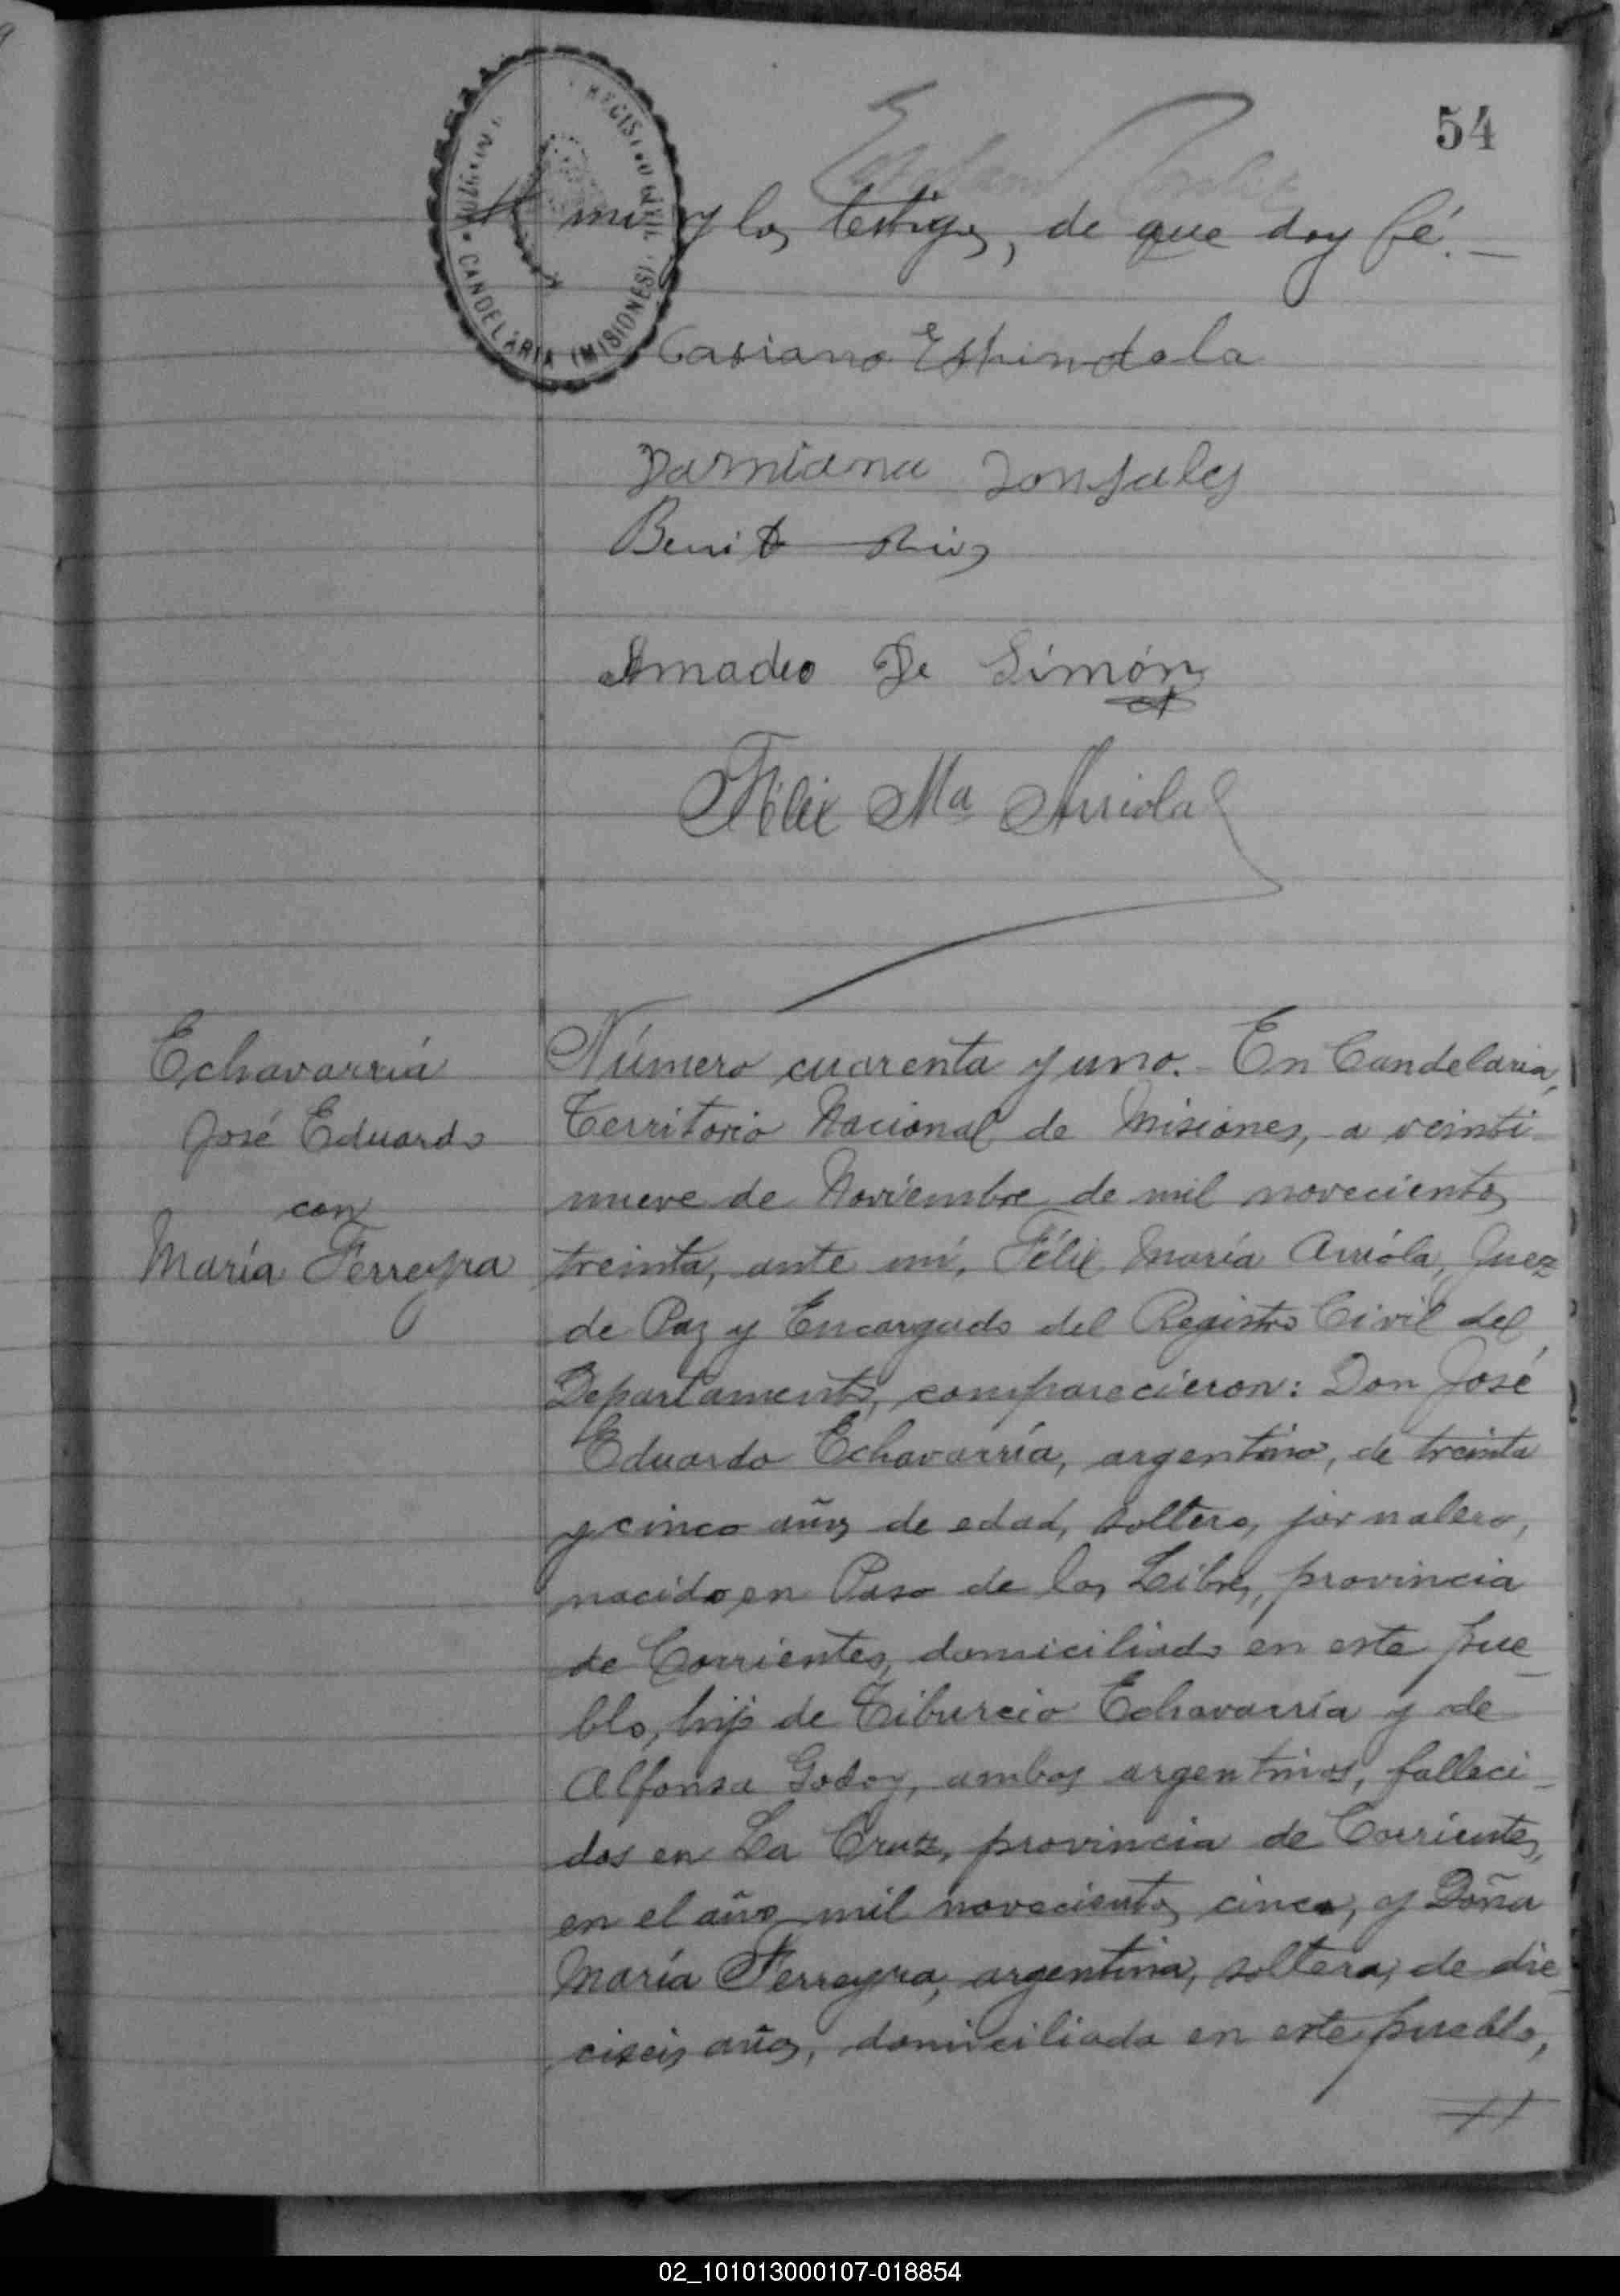 54
REGISTRO CIVIL
CANDELARIA (MISIONES)
mi y los testigos, de que doy fé.—
Casiano Espindola
Damiana Gonsales
Benito Rios
Amadeo De Simón
Félix Ma Arriola
Echavarría
José Eduardo
con
María Ferreyra
Número cuarenta y uno.- En Candelaria,
Territorio Nacional de Misiones, a veinti-
nueve de Noviembre de mil novecientos
treinta, ante mí, Félix María Arriola, Juez
de Paz y Encargado del Registro Civil del
Departamento, comparecieron: Don José
Eduardo Echavarría, argentino, de treinta
y cinco años de edad, soltero, jornalero,
nacido en Paso de los Libres, provincia
de Corrientes, domiciliado en este pue-
blo, hijo de Tiburcio Echavarría y de
Alfonsa Godoy, ambos argentinos, falleci-
dos en La Cruz, provincia de Corrientes,
en el año mil novecientos cinco, y Doña
María Ferreyra, argentina, soltera, de die-
ciseis años, domiciliada en este pueblo,
02_101013000107-018854